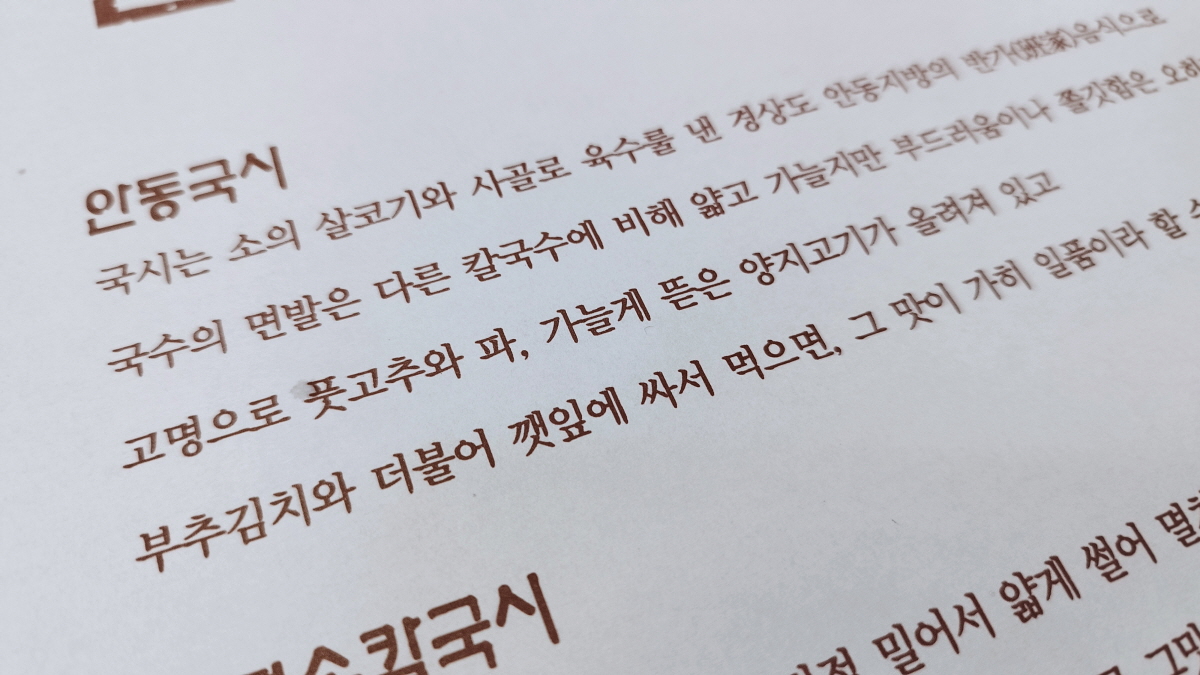 안동국시
국시는 소의 살코기와 사골로 육수를 낸 경상도 안동지방의 반가(班家)음식으로
국수의 면발은 다른 칼국수에 비해 얇고 가늘지만 부드러움이나 쫄깃함은
고명으로 풋고추와 파, 가늘게 뜯은 양지고기가 올려져 있고
부추김치와 더불어 깻잎에 싸서 먹으면, 그 맛이 가히 일품이라 할
칼국시
밀어서 얇게 썰어